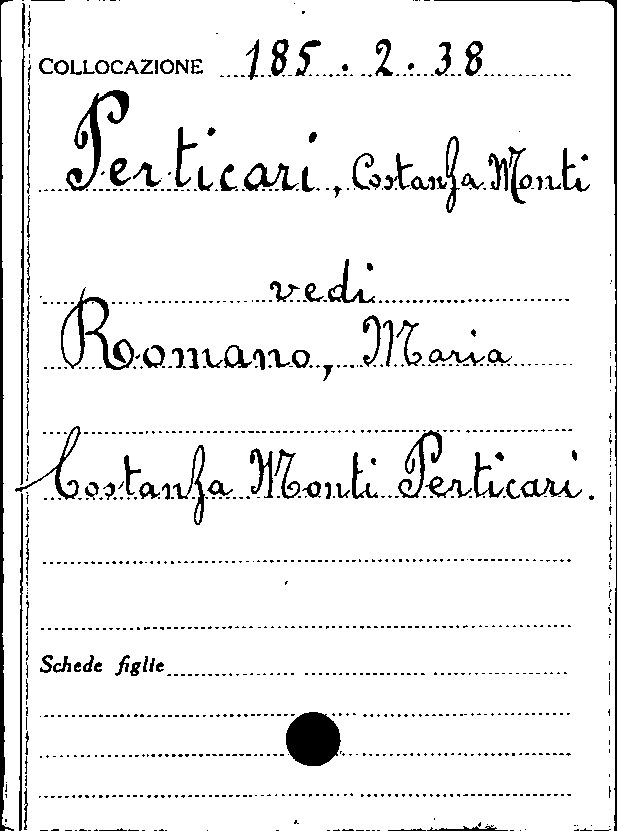 COLLOCAZIONE 185.2.38
Perticari, Costanza Monti
vedi
Romano, Maria
Costanza Monti Perticari.
Schede figlie